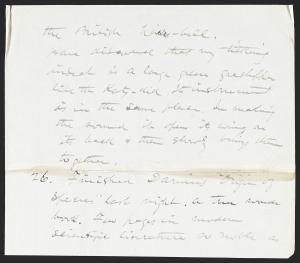 the British
have discovered that my
insect is a large green grasshopper
like the Katy-did. Its instrument
is in the same place. In making
the sound it opens its wings on
its back & then them
together.
26. Finished Darwins "Origin of
Species" last night. A true wonder
book. Few pages in modern
scientific literature so noble as